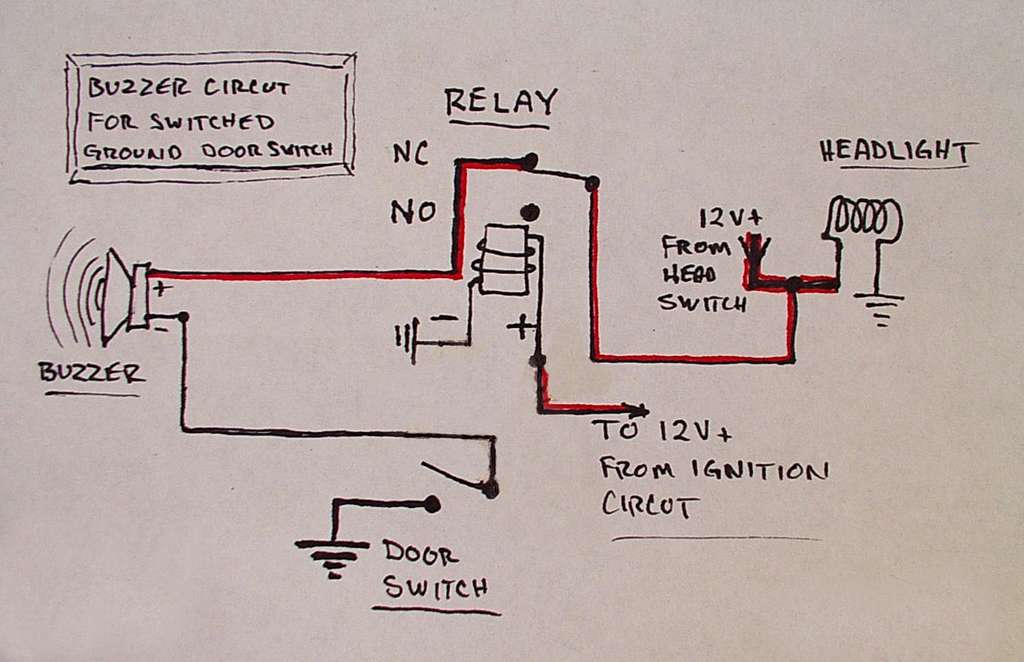 BUZZER CIRCUT
FOR SWITCHED
GROUND DOOR SWITCH
RELAY
NC
NO
HEADLIGHT
12V+
FROM
HEAD
SWITCH
+
-
BUZZER
-
+
TO 12V+
FROM IGNITION
CIRCUT
DOOR
SWITCH